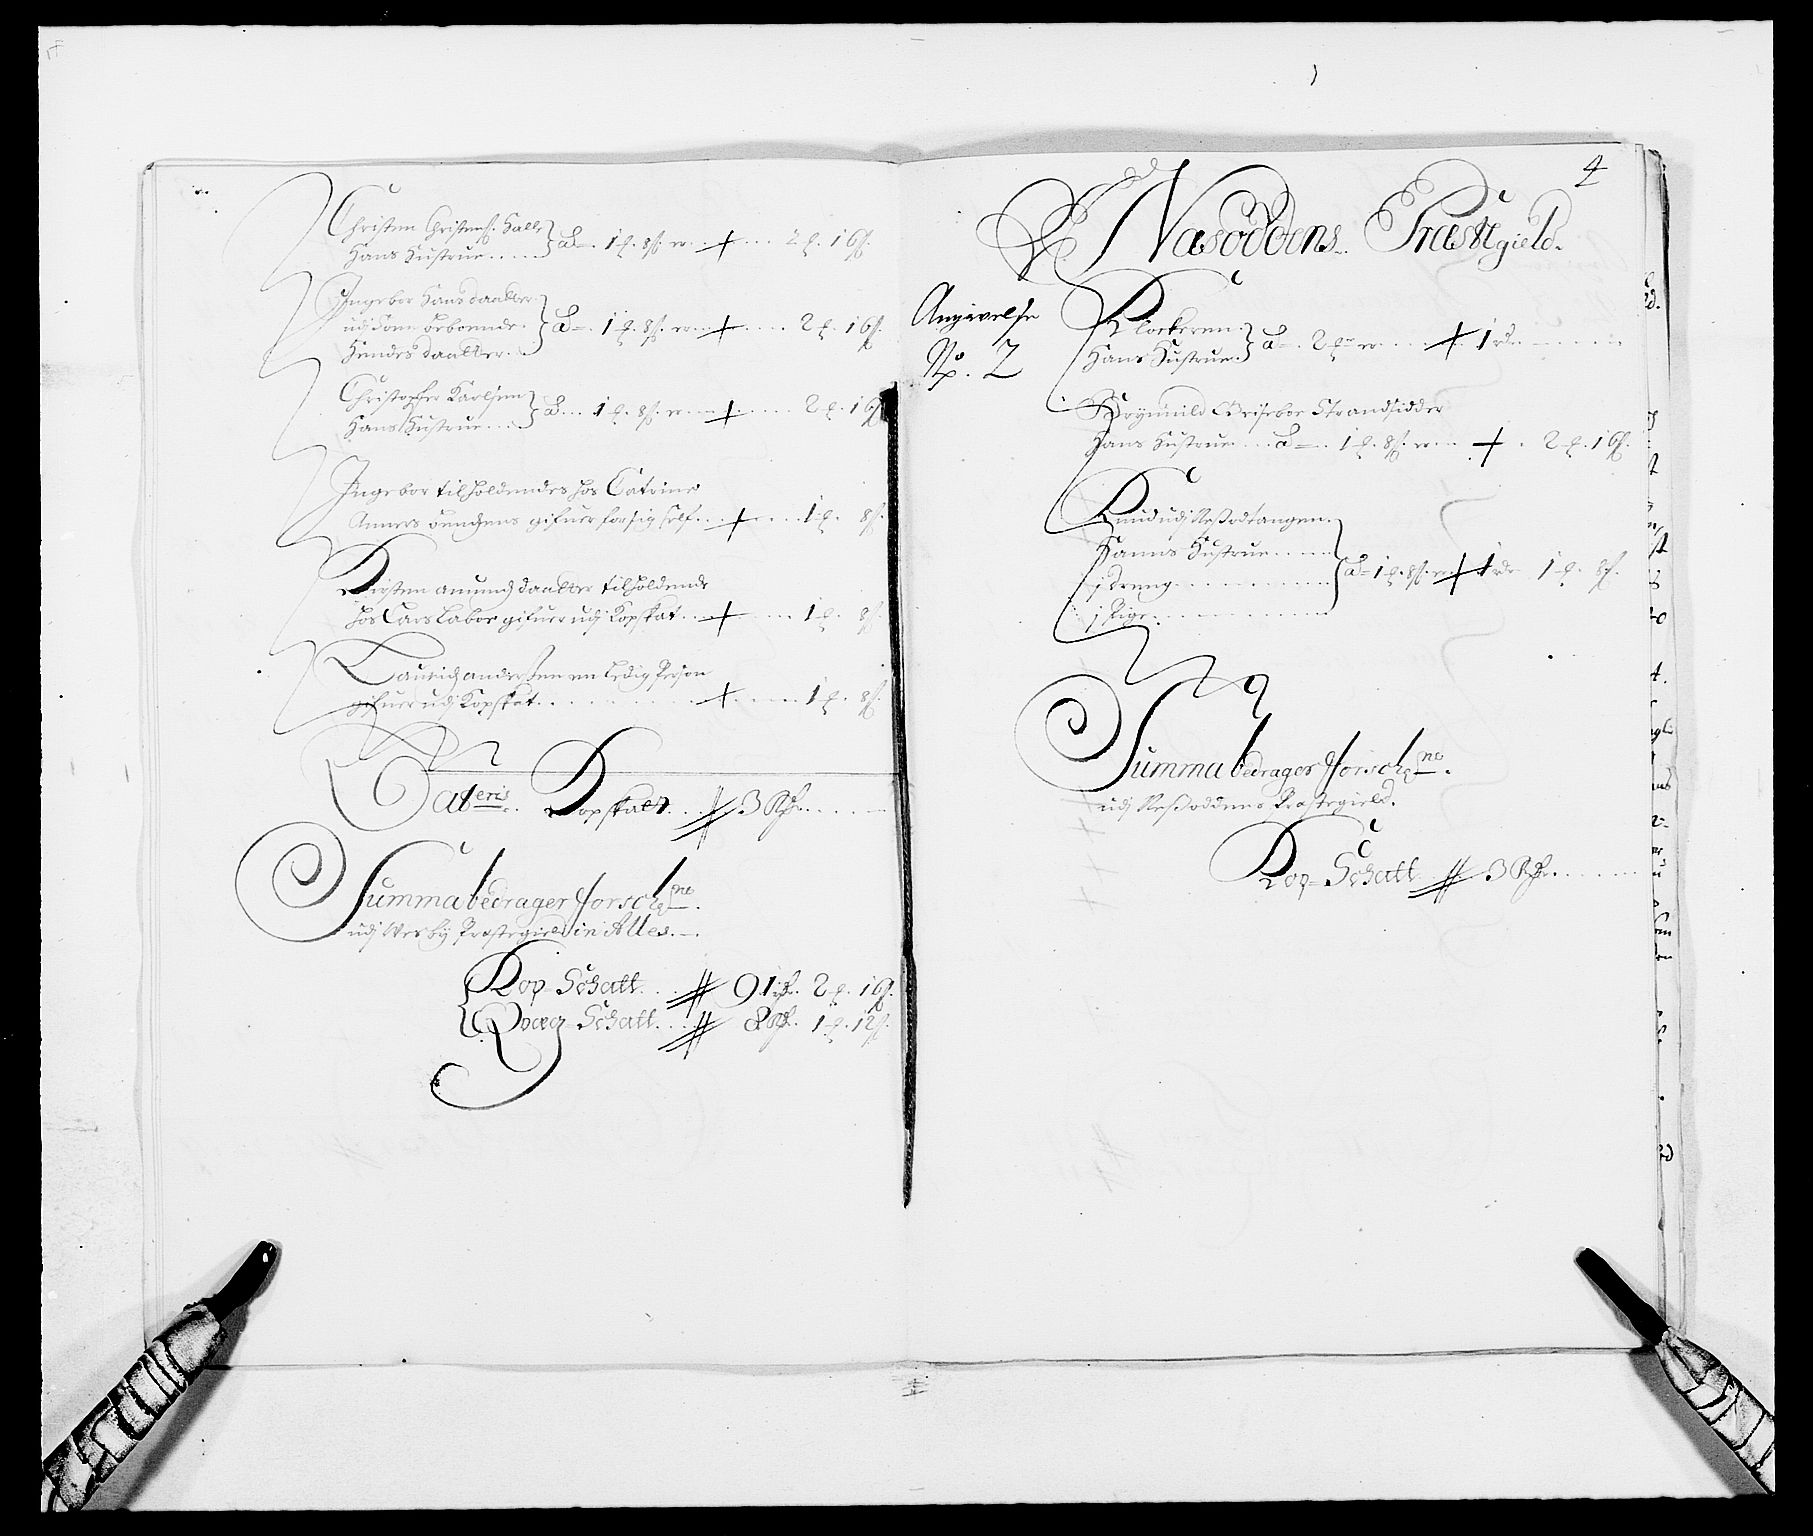 Christen Christens: Halle
Hans Hustrue ..... } ad. 1 ℔. 8 ß. er ..... 2 ℔. 16 ß.
Ingebor Hansdaatter
udj Soen boendne
Hendes daatter. } ad. 1 ℔. 8 ß. er ..... 2 ℔. 16 ß.
Christopher Karlsen
Hans Hustrue .... } ad... 1 ℔. 8 ß. er ..... 2 ℔. 16 ß.
Ingebor tilholdendes hos Catrine
Anners gifuer for sig self ..... 1 ℔. 8 ß.
Kirsten amund daatter tilholdende
hos Lars Labor gifuer udj Kopskat ..... 1 ℔. 8 ß.
Lauridz andersen en Ledig Person
gifuer udj Kopskat ..... 1 ℔. 8 ß.
Lateris. Kopskatt .. # 3 Rdr.
Summa bedrager forschne
udj Wesby Præstegield in Alles.
Kop-Schatt .. # 91 rdr. 2 ℔. 16 ß.
Qvæg-Schatt ... # 8 Rdr. 1 ℔. 12 ß.
4
Næsoddens Præstegield.
Angivelse
No. 2
Klockeren
Hans Hustrue } ad. 2 ℔ er .... 1 rdr.
Strandsidder
Hans Hustrue ... ad. 1 ℔. 8 ß. er ... 2 ℔. 16 ß.
Knud udj Neßodtangen
Hanns Hustrue
j dreng
j Pige } ad 1 ℔. 8 ß. er 1 rdr 1 ℔. 8 ß.
Summa bedrager forschne
udj Neßoddens Præstegield.
Kop-Schatt # 3 Rdr.